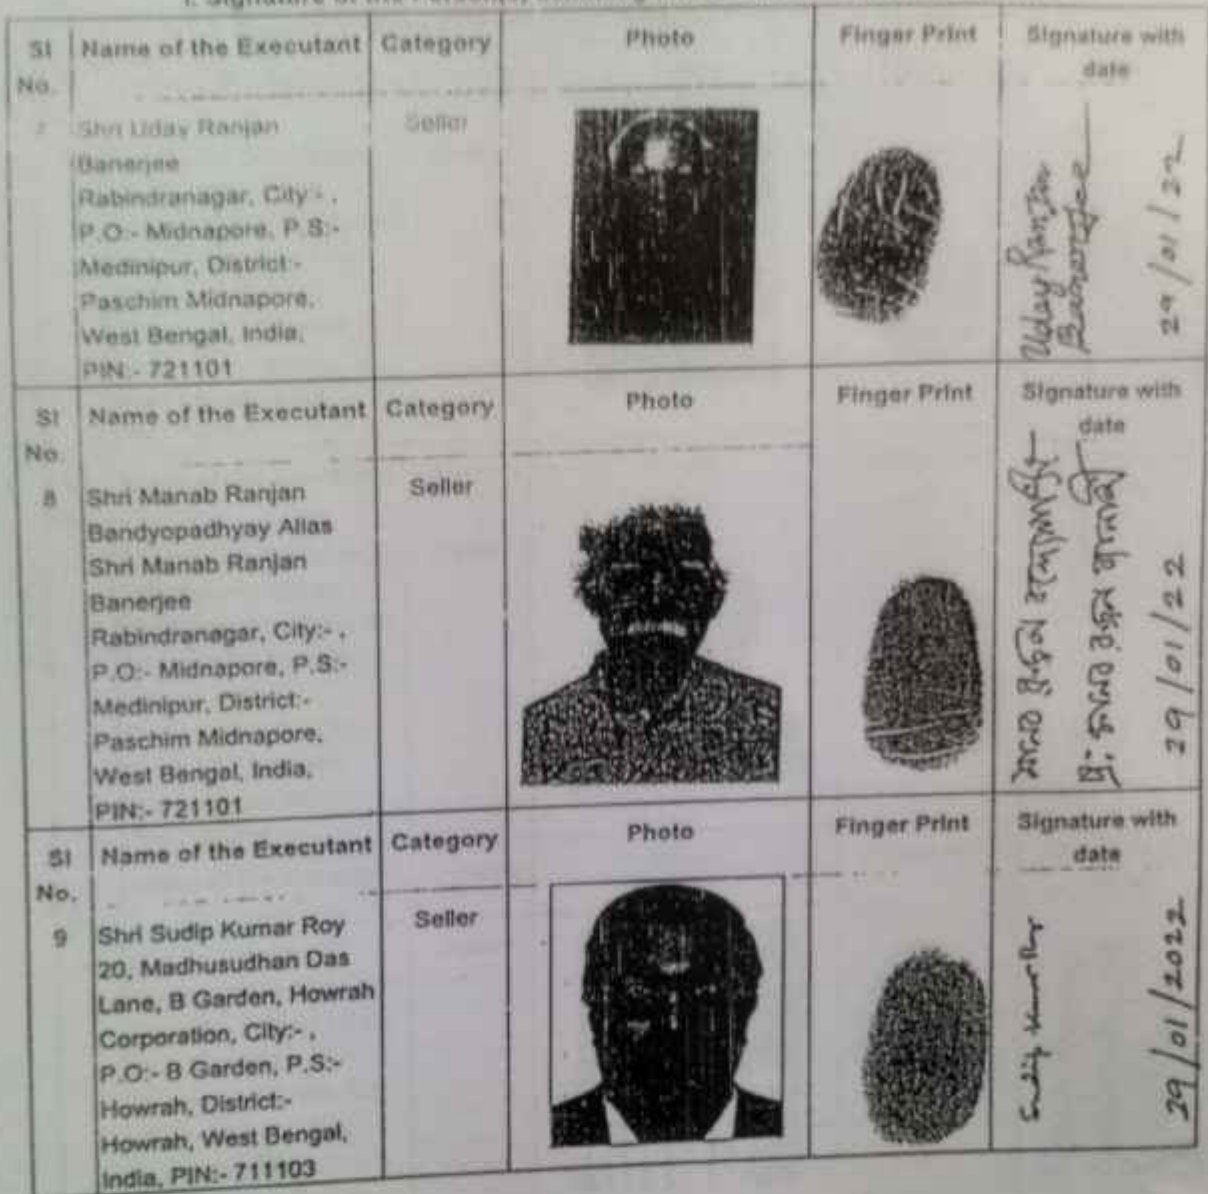 I. Signature of the Person(s)
Sl No. Name of the Executant Category Photo Finger Print Signature with date
7 Shri Uday Ranjan Seller
Banerjee
Rabindranagar, City:- ,
P.O:- Midnapore, P.S:-
Medinipur, District:-
Paschim Midnapore,
West Bengal, India,
PIN:- 721101
Uday Ranjan
Banerjee
29/01/22
Sl No. Name of the Executant Category Photo Finger Print Signature with date
8 Shri Manab Ranjan Seller
Bandyopadhyay Alias
Shri Manab Ranjan
Banerjee
Rabindranagar, City:- ,
P.O:- Midnapore, P.S:-
Medinipur, District:-
Paschim Midnapore,
West Bengal, India,
PIN:- 721101
মানব রঞ্জন বন্দ্যোপাধ্যায়
29/01/22
Sl No. Name of the Executant Category Photo Finger Print Signature with date
9 Shri Sudip Kumar Roy Seller
20, Madhusudhan Das
Lane, B Garden, Howrah
Corporation, City:- ,
P.O:- B Garden, P.S:-
Howrah, District:-
Howrah, West Bengal,
India, PIN:- 711103
Sudip Kumar Roy
29/01/2022